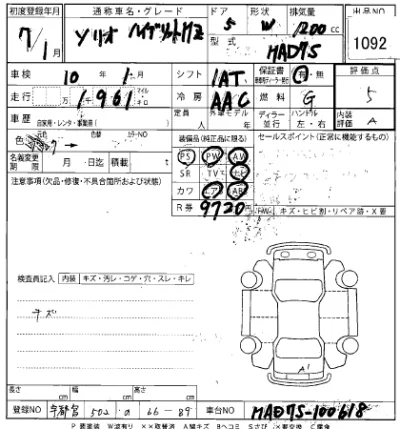 初度登録年月 通称車名・グレード ドア 形状 排気量 出品NO
7/1月 ソリオ ハイブリットMZ 5 W 1200cc
型式 MAD7S 1092
車検 10年1月 シフト IAT 保証書 有・無 評価点
走行 1961 マイル キロ 冷房 AAC 燃料 G 5
車歴 自家用・レンタ・事業用( ) 定員 人 外車モデル ディーラー 並行 ハンドル 左・右 内装評価 A
色 元色 色替 カラーNO 装備品(純正品に限る) セールスポイント(正常に機能するもの)
PS PW AW
名義変更期限 月 日迄 積載 t SR TV ナビ
注意事項(欠品・修復・不具合箇所および状態) カワ エアB ABS
R券 9720円 キズ・ヒビ割・リペア跡・X要
検査員記入 内装 キズ・汚レ・コゲ・穴・スレ・キレ
キズ
A1
長さ cm 幅 cm 高さ cm
登録NO 宇都宮 502 a 66-89 車台NO MAD7S-100618
P 要塗装 W 波有り XX 取替済 A 線キズ B ヘコミ S さび X 要交換 C 腐食